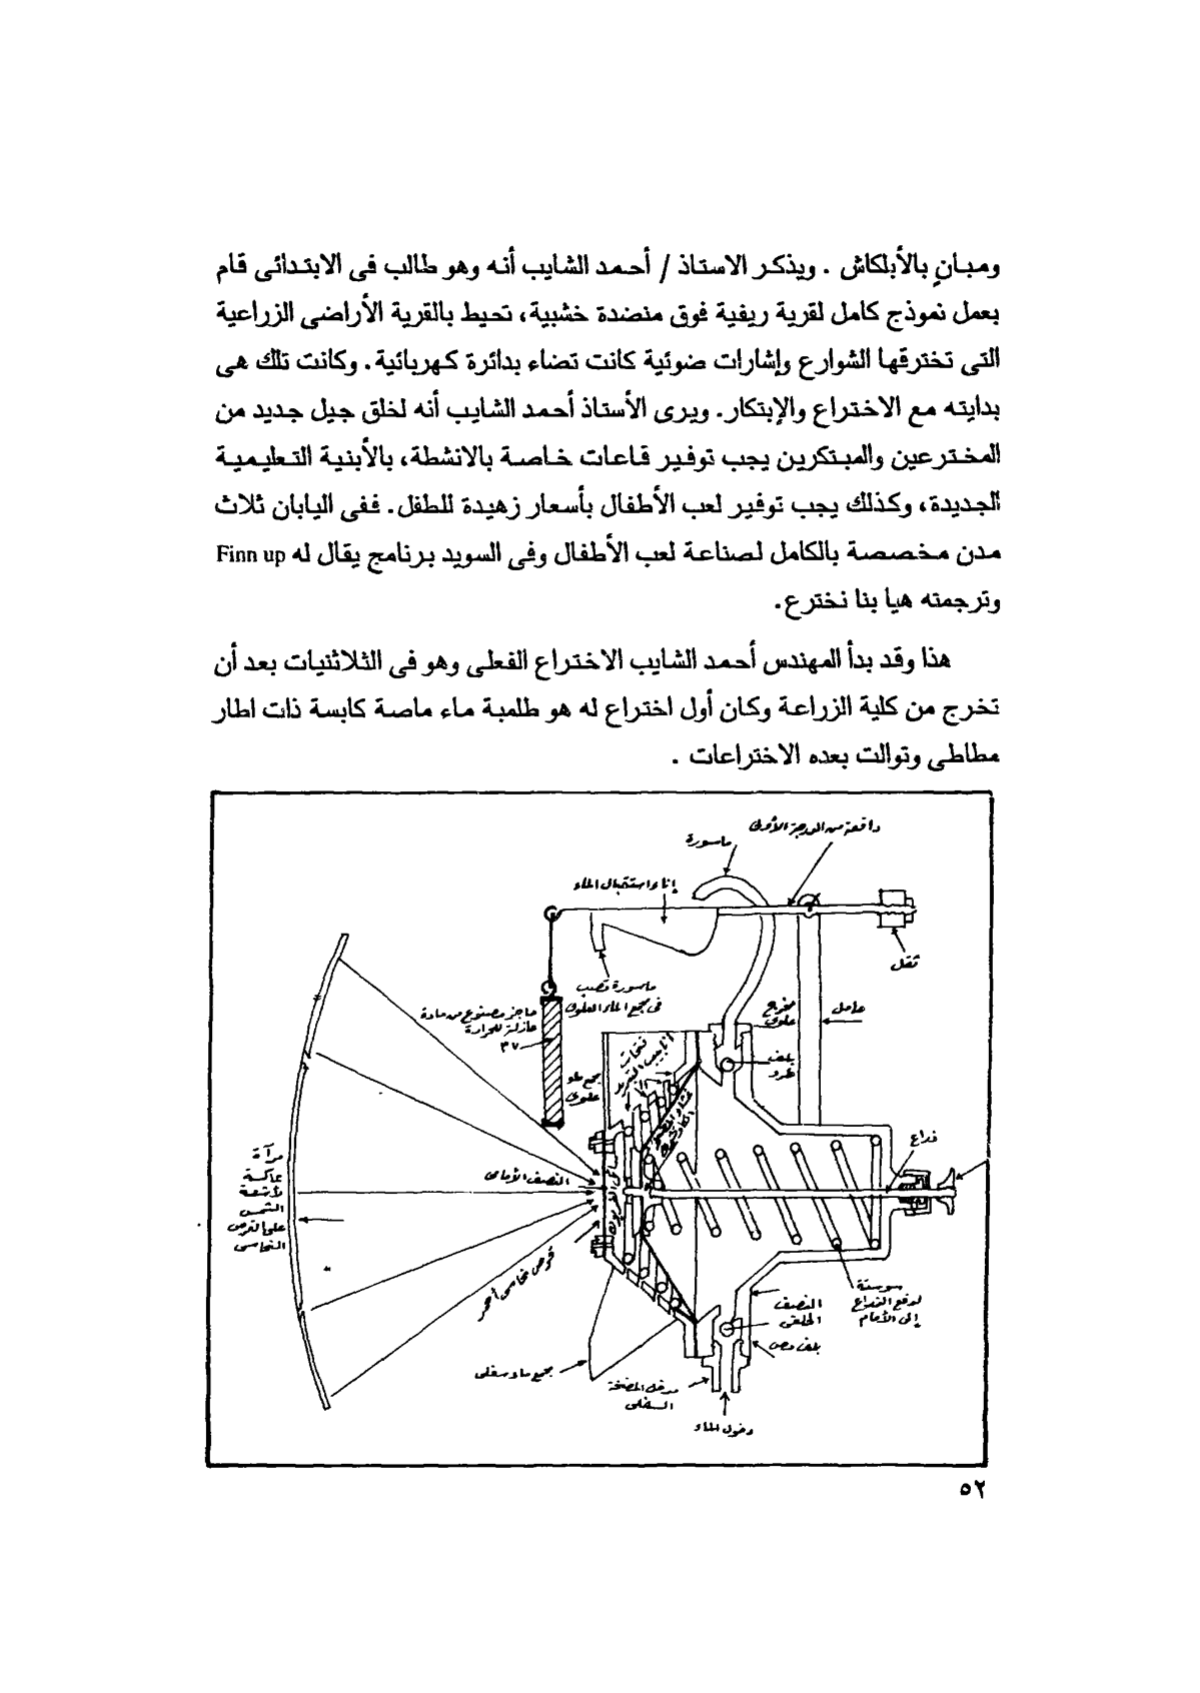 ومبانٍ بالأبلكاش . ويذكر الاستاذ / أحمد الشايب أنه وهو طالب فى الابتدائى قام
بعمل نموذج كامل لقرية ريفية فوق منضدة خشبية، تحيط بالقرية الأراضى الزراعية
التى تخترقها الشوارع وإشارات ضوئية كانت تضاء بدائرة كهربائية. وكانت تلك هى
بدايته مع الاختراع والإبتكار. ويرى الأستاذ أحمد الشايب أنه لخلق جيل جديد من
المخترعين والمبتكرين يجب توفير قاعات خاصة بالانشطة، بالأبنية التعليمية
الجديدة، وكذلك يجب توفير لعب الأطفال بأسعار زهيدة للطفل. ففى اليابان ثلاث
مدن مخصصة بالكامل لصناعة لعب الأطفال وفى السويد برنامج يقال له Finn up
وترجمته هيا بنا نخترع.
هذا وقد بدأ المهندس أحمد الشايب الاختراع الفعلى وهو فى الثلاثنيات بعد أن
تخرج من كلية الزراعة وكان أول اختراع له هو طلمبة ماء ماصة كابسة ذات اطار
مطاطى وتوالت بعده الاختراعات .
دافعة من الدرجة الأولى
ماسورة
إناء استقبال الماء
ثقل
ماسورة تصب
فى مجمع الماء العلوى
حاجز مصنوع من مادة
عازلة للحرارة
٣٧
مخرج
علوى
حامل
بلف
طرد
مجمع ماء
علوى
فتحات
ذراع
النصف الأمامى
مرآة
عاكسة
لأشعة
الشمس
على القرص
النحاسى
قرص نحاسى أحمر
سوستة
لدفع الذراع
إلى الأمام
النصف
الخلفى
بلف مص
مجمع ماء سفلى
مدخل المضخة
السفلى
دخول الماء
٥٢